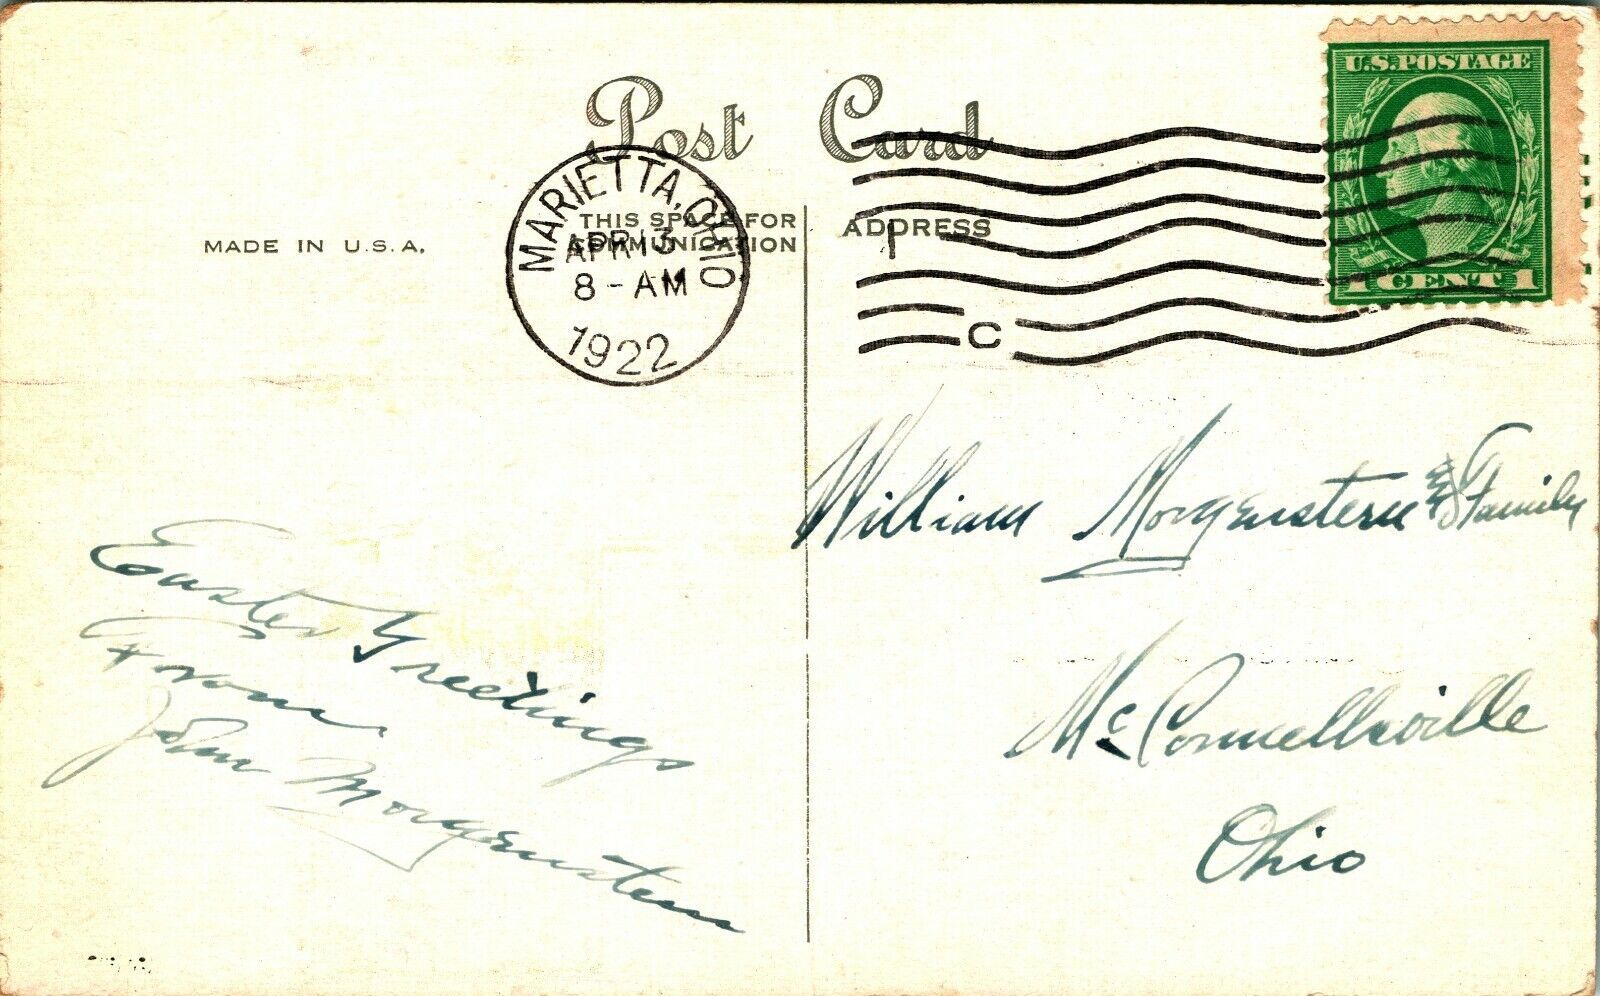 U.S.POSTAGE
1 CENT 1
Post Card
MARIETTA, OHIO
APR 13
8-AM
1922
1
C
THIS SPACE FOR
COMMUNICATION
ADDRESS
MADE IN U.S.A.
Easter Greetings
From
John Morgenstern
William Morgenstern & Family
McConnellsville
Ohio